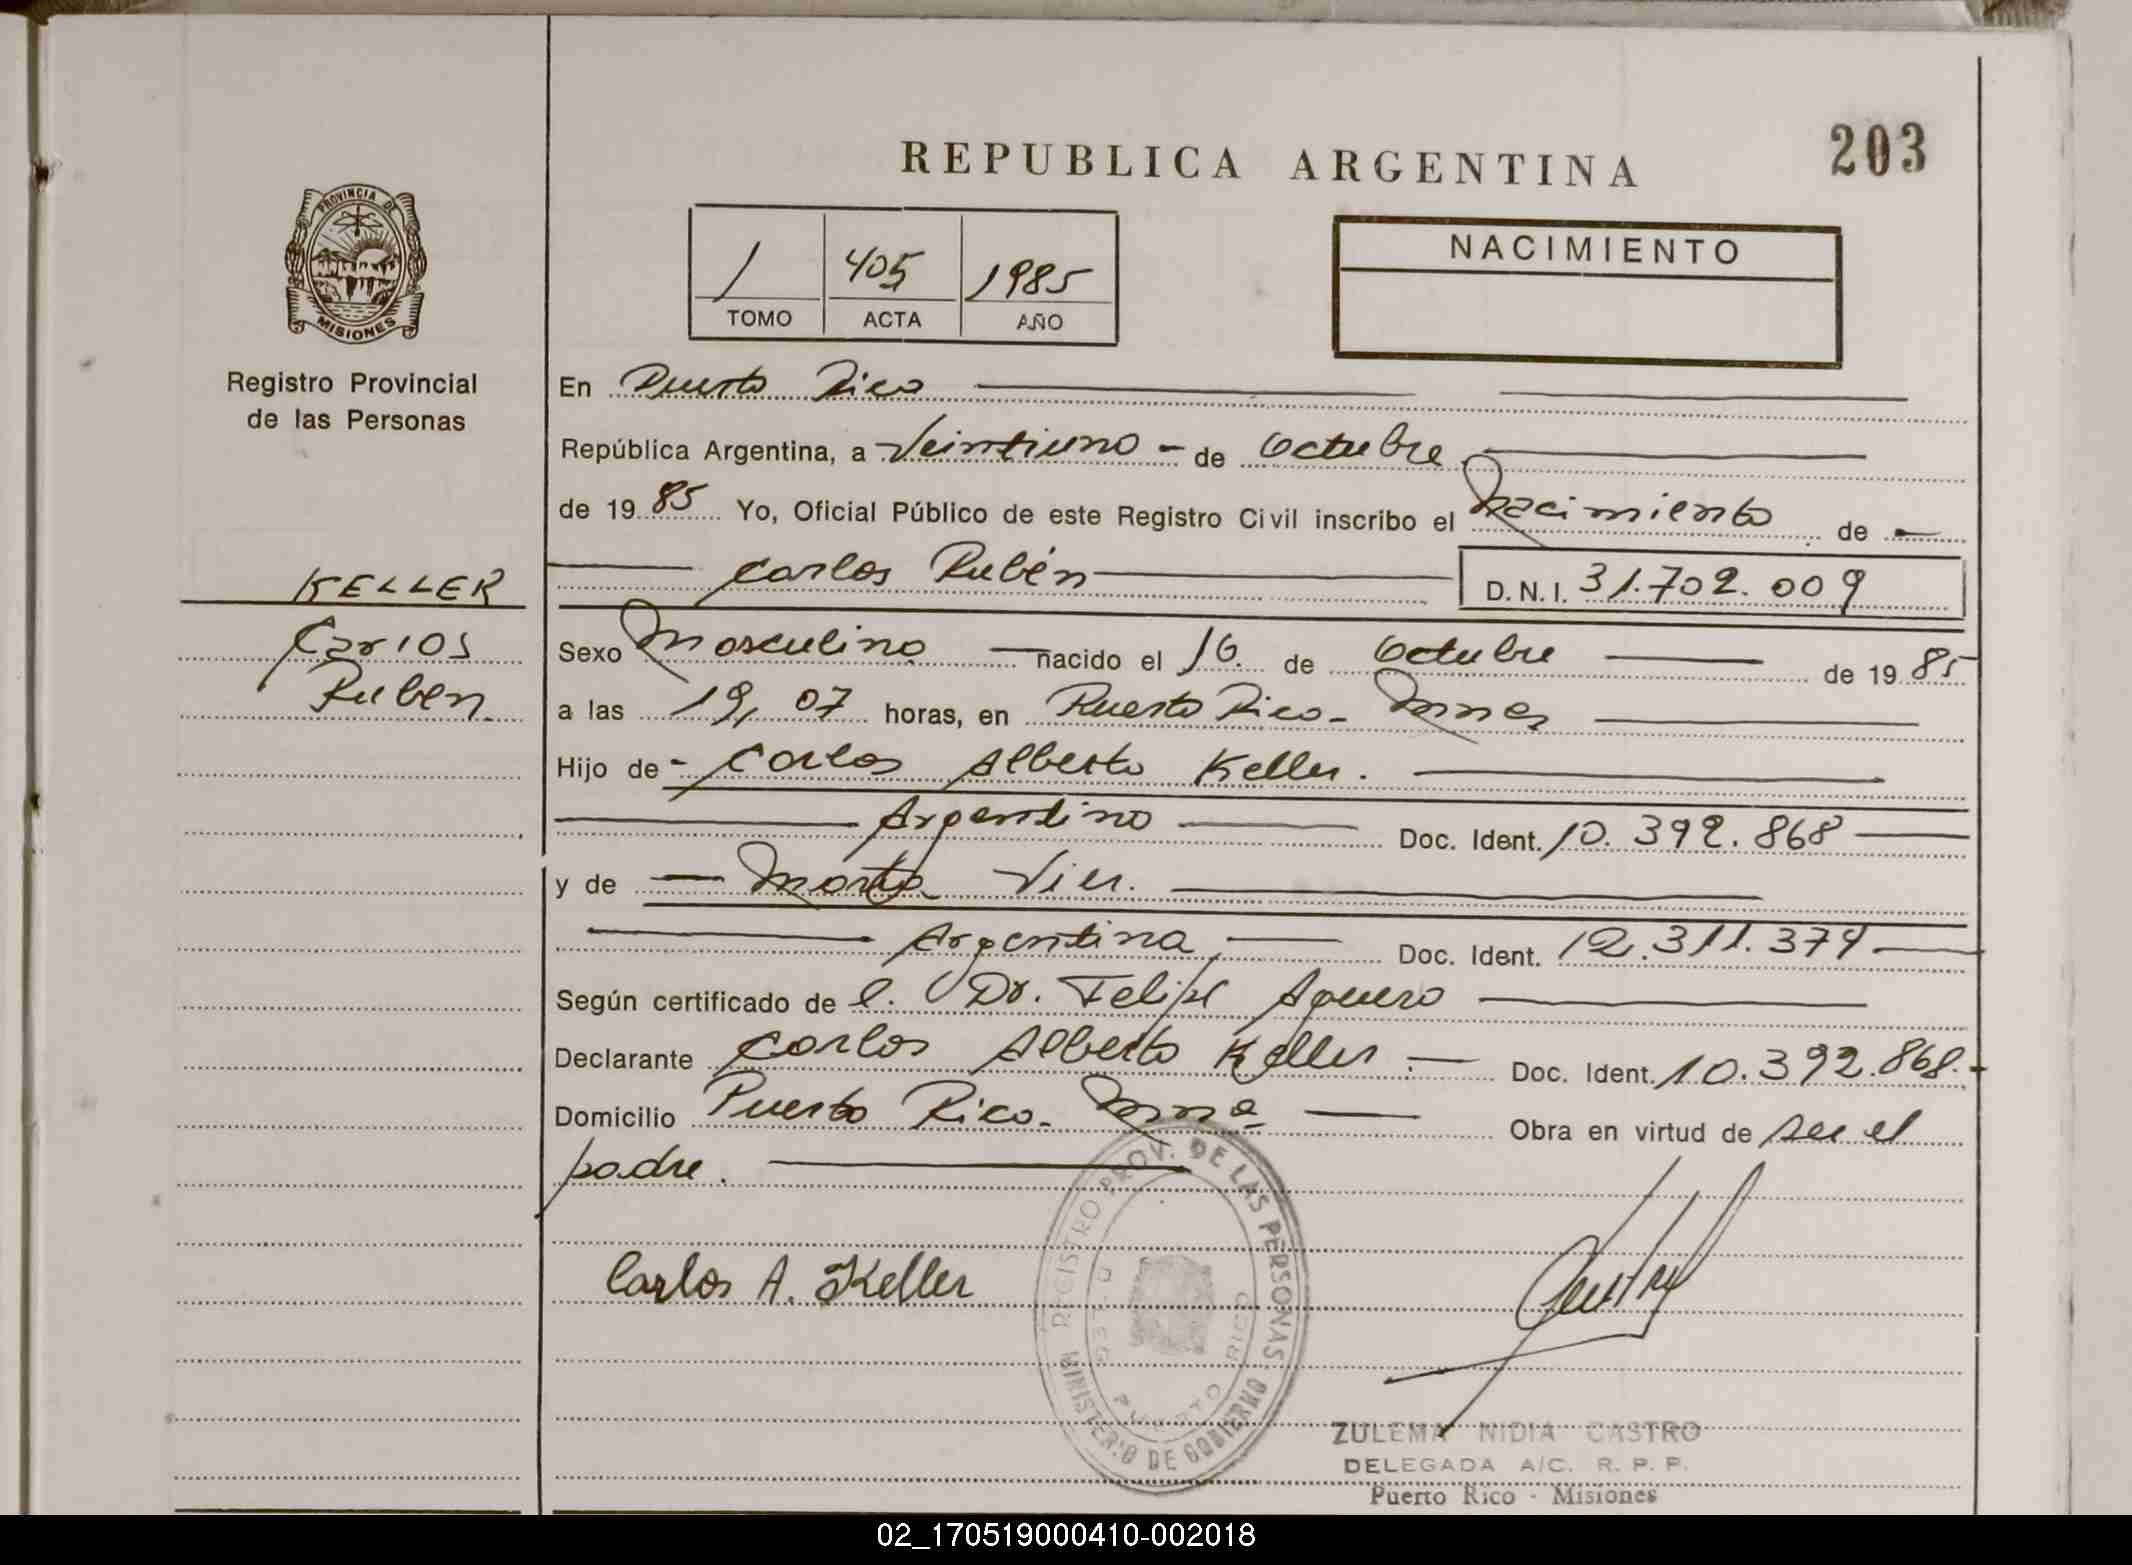 203
REPUBLICA ARGENTINA
PROVINCIA DE
MISIONES
1 405 1985
TOMO ACTA AÑO
NACIMIENTO
Registro Provincial
de las Personas
En Puerto Rico
República Argentina, a Veintiuno - de Octubre
de 1985 Yo, Oficial Público de este Registro Civil inscribo el Nacimiento de
Carlos Rubén D.N.I. 31.702.009
KELLER
Carlos
Ruben
Sexo Masculino nacido el 16 de Octubre de 1985
a las 19,07 horas, en Puerto Rico- Mnes
Hijo de - Carlos Alberto Keller.
Argentino Doc. Ident. 10.392.868
y de Marta Vier.
Argentina Doc. Ident. 12.311.374
Según certificado de l. Dr. Felipe Aguero
Declarante Carlos Alberto Keller. Doc. Ident. 10.392.868.-
Domicilio Puerto Rico- Mnes Obra en virtud de ser el
padre.
Carlos A. Keller
REGISTRO PROV. DE LAS PERSONAS
MINISTERIO DE GOBIERNO
DELEG PUERTO RICO
ZULEMA NIDIA CASTRO
DELEGADA A/C. R. P. P.
Puerto Rico - Misiones
02_170519000410-002018